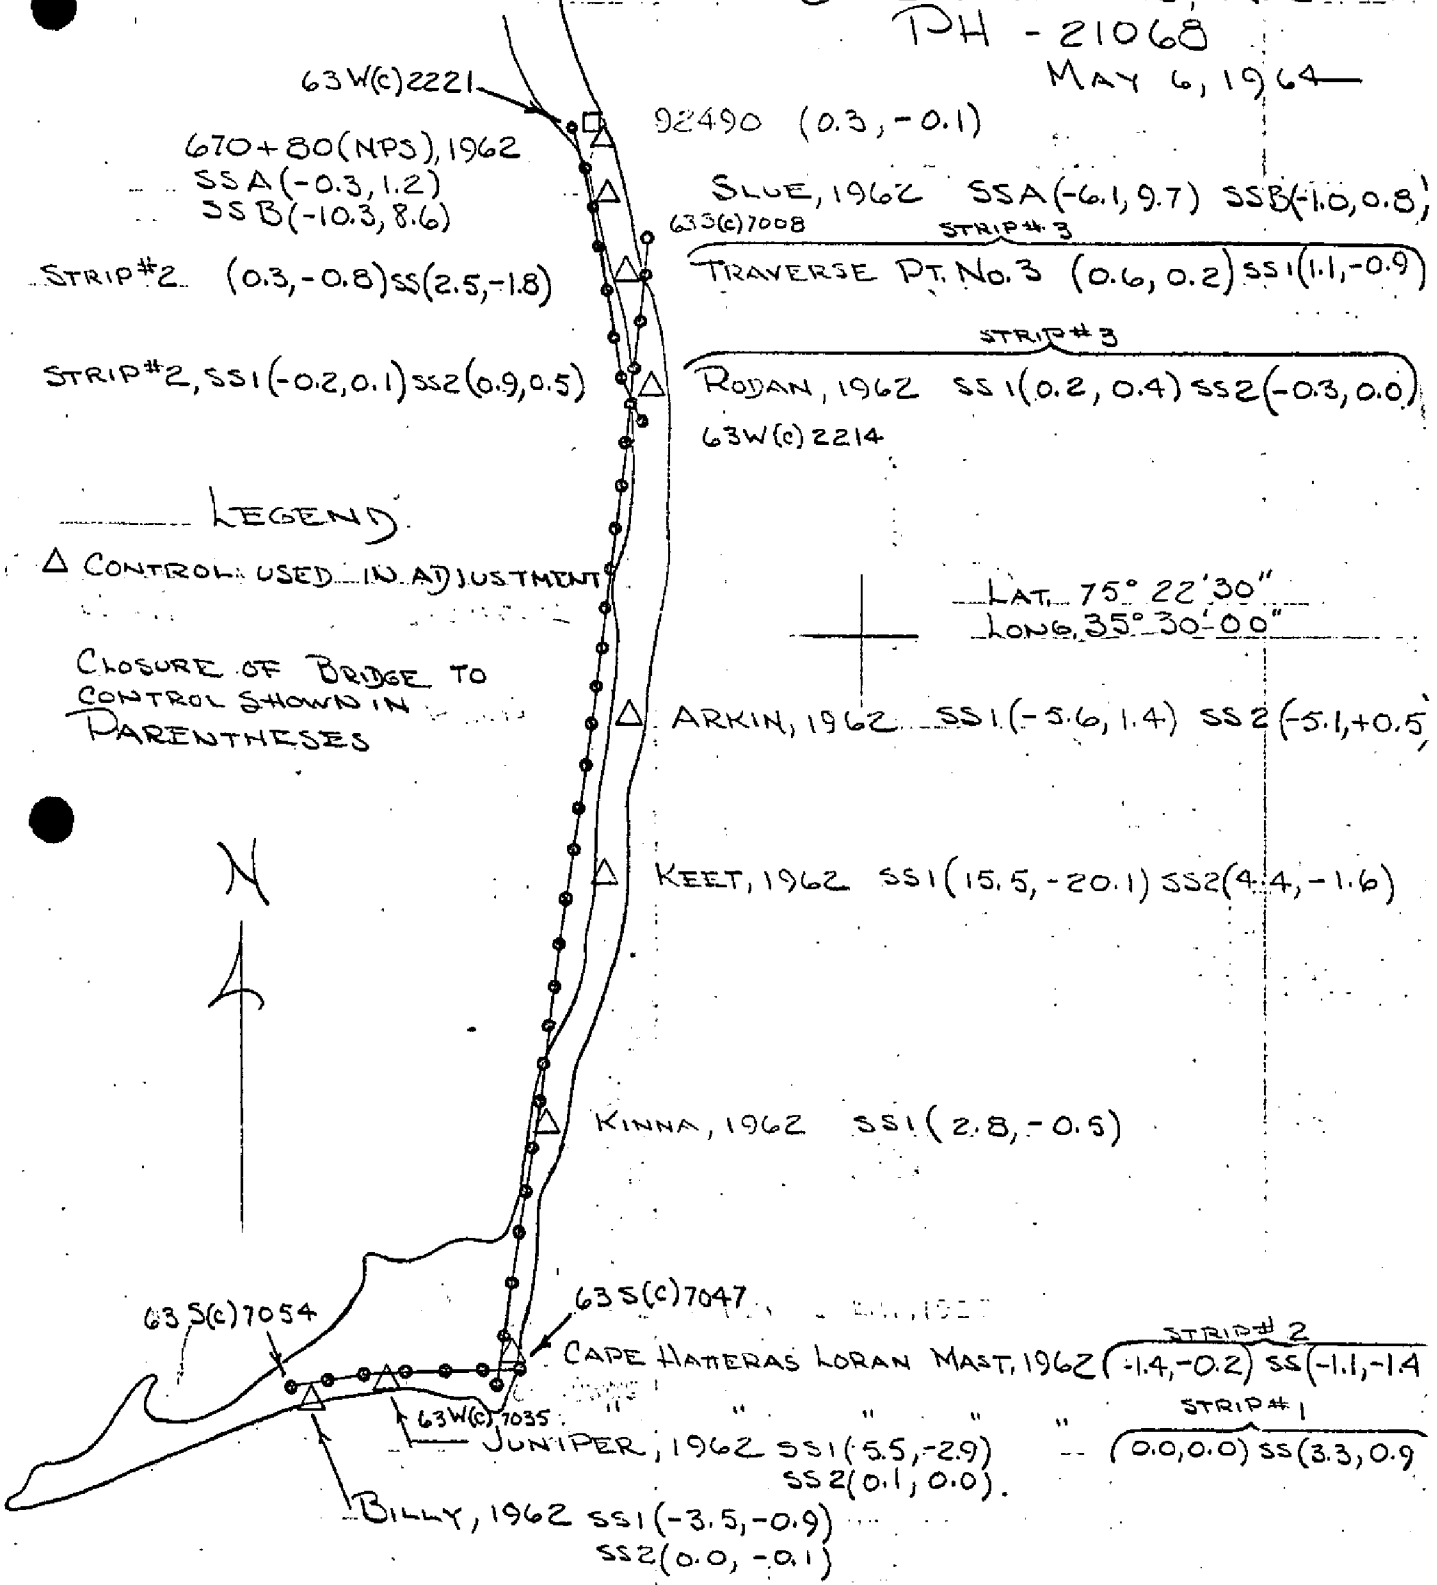 PH - 21068
MAY 6, 1964
63W(C)2221
92490 (0.3, -0.1)
670+80(NPS), 1962
SSA(-0.3, 1.2)
SSB(-10.3, 8.6)
SLUE, 1962 SSA(-6.1, 9.7) SSB(-1.0, 0.8)
63S(C)7008
STRIP #3
STRIP #2 (0.3, -0.8) SS(2.5, -1.8)
TRAVERSE PT. No. 3 (0.6, 0.2) SS1(1.1, -0.9)
STRIP #3
STRIP #2, SS1(-0.2, 0.1) SS2(0.9, 0.5)
RODAN, 1962 SS1(0.2, 0.4) SS2(-0.3, 0.0)
63W(C)2214
LEGEND
△ CONTROL USED IN ADJUSTMENT
LAT. 75° 22' 30"
LONG. 35° 30' 00"
CLOSURE OF BRIDGE TO
CONTROL SHOWN IN
PARENTHESES
ARKIN, 1962 SS1(-5.6, 1.4) SS2(-5.1, +0.5)
N
KEET, 1962 SS1(15.5, -20.1) SS2(4.4, -1.6)
KINNA, 1962 SS1(2.8, -0.5)
63S(C)7054
63S(C)7047
STRIP #2
CAPE HATTERAS LORAN MAST, 1962 (-1.4, -0.2) SS(-1.1, -1.4
STRIP #1
" " " " " (0.0, 0.0) SS(3.3, 0.9
63W(C)7035
JUNIPER, 1962 SS1(5.5, -2.9)
SS2(0.1, 0.0).
BILLY, 1962 SS1(-3.5, -0.9)
SS2(0.0, -0.1)